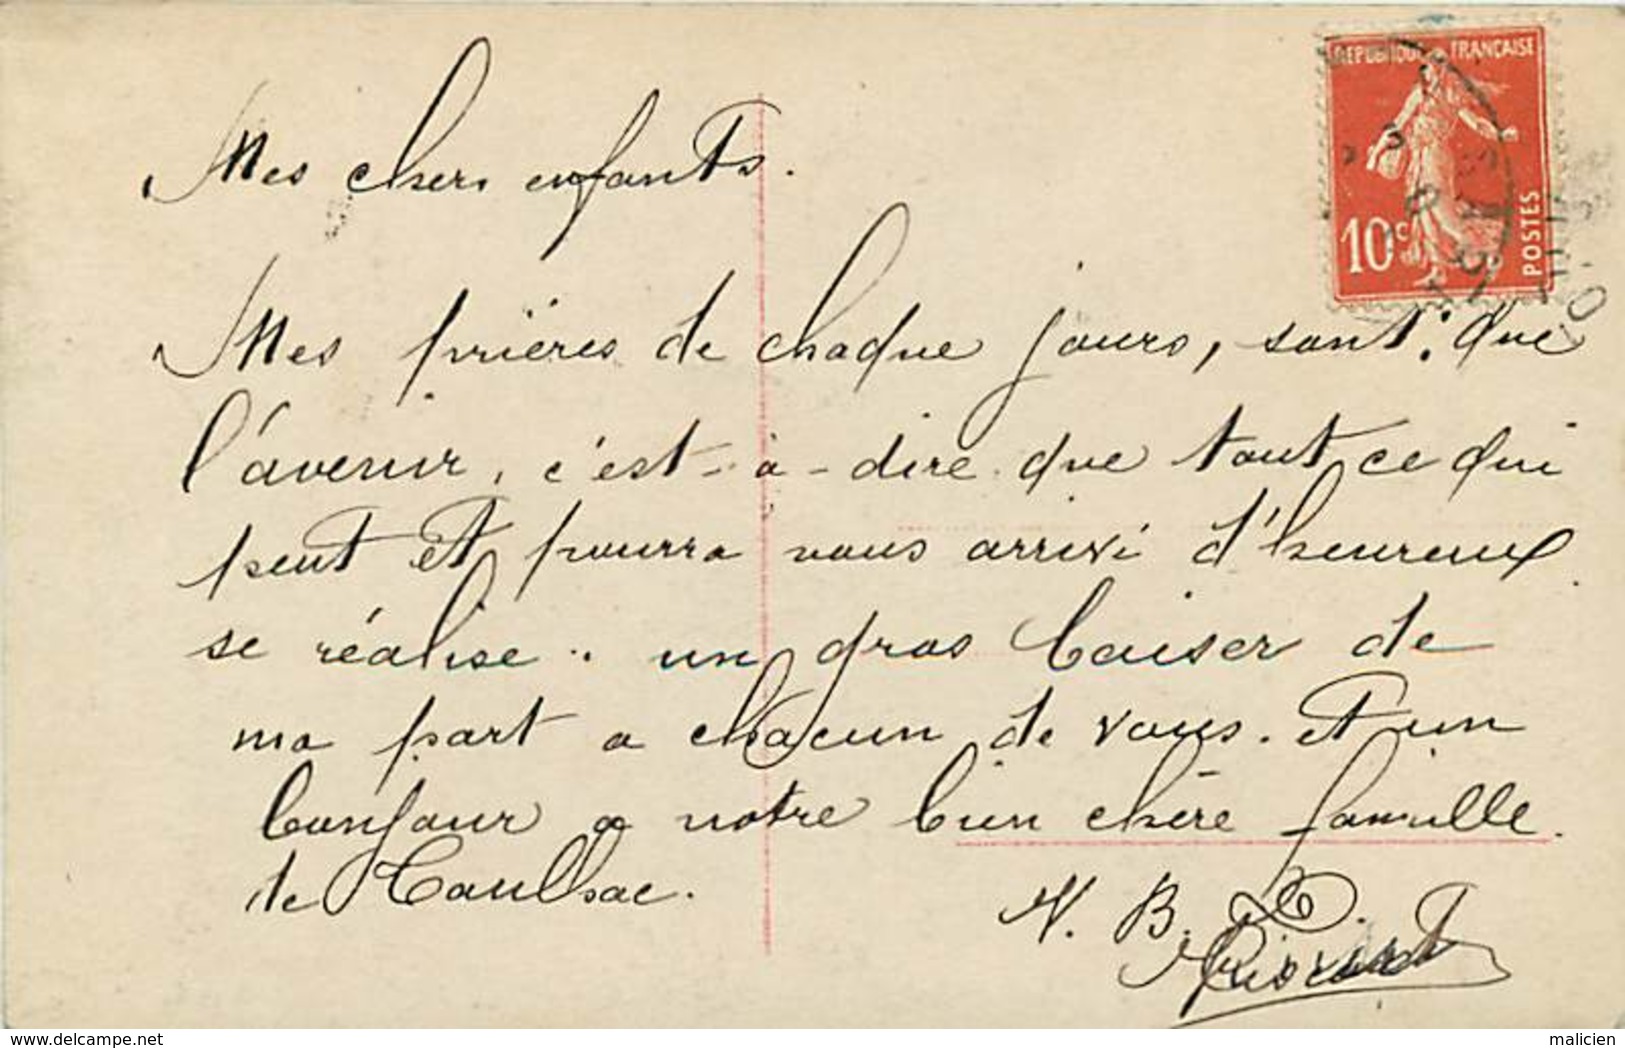 REPUBLIQUE FRANÇAISE
10c
POSTES
Mes chers enfants.
Mes prières de chaque jours, sont: que
l'avenir, c'est-à-dire que tout ce qui
peut et pourra vous arrivé d'heureux
se réalise. un gros baiser de
ma part a chacun de vous. Et un
bonjour a notre bien chère famille
de Caulhac.
N. B.
www.delcampe.net
malicien